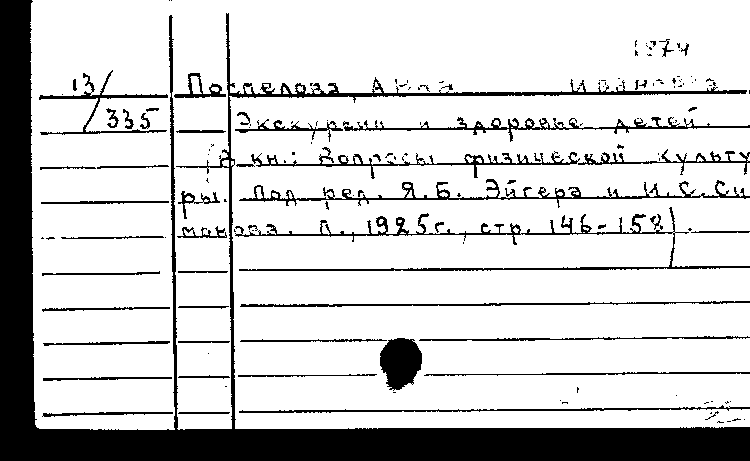 1874
13/335 Поспелова, Анна Ивановна
Экскурсии и здоровье детей.
(В кн.: Вопросы физической культу
ры. Под ред. Я.Б. Эйгера и И.С.Си
монова. Л., 1925г., стр. 146-158).